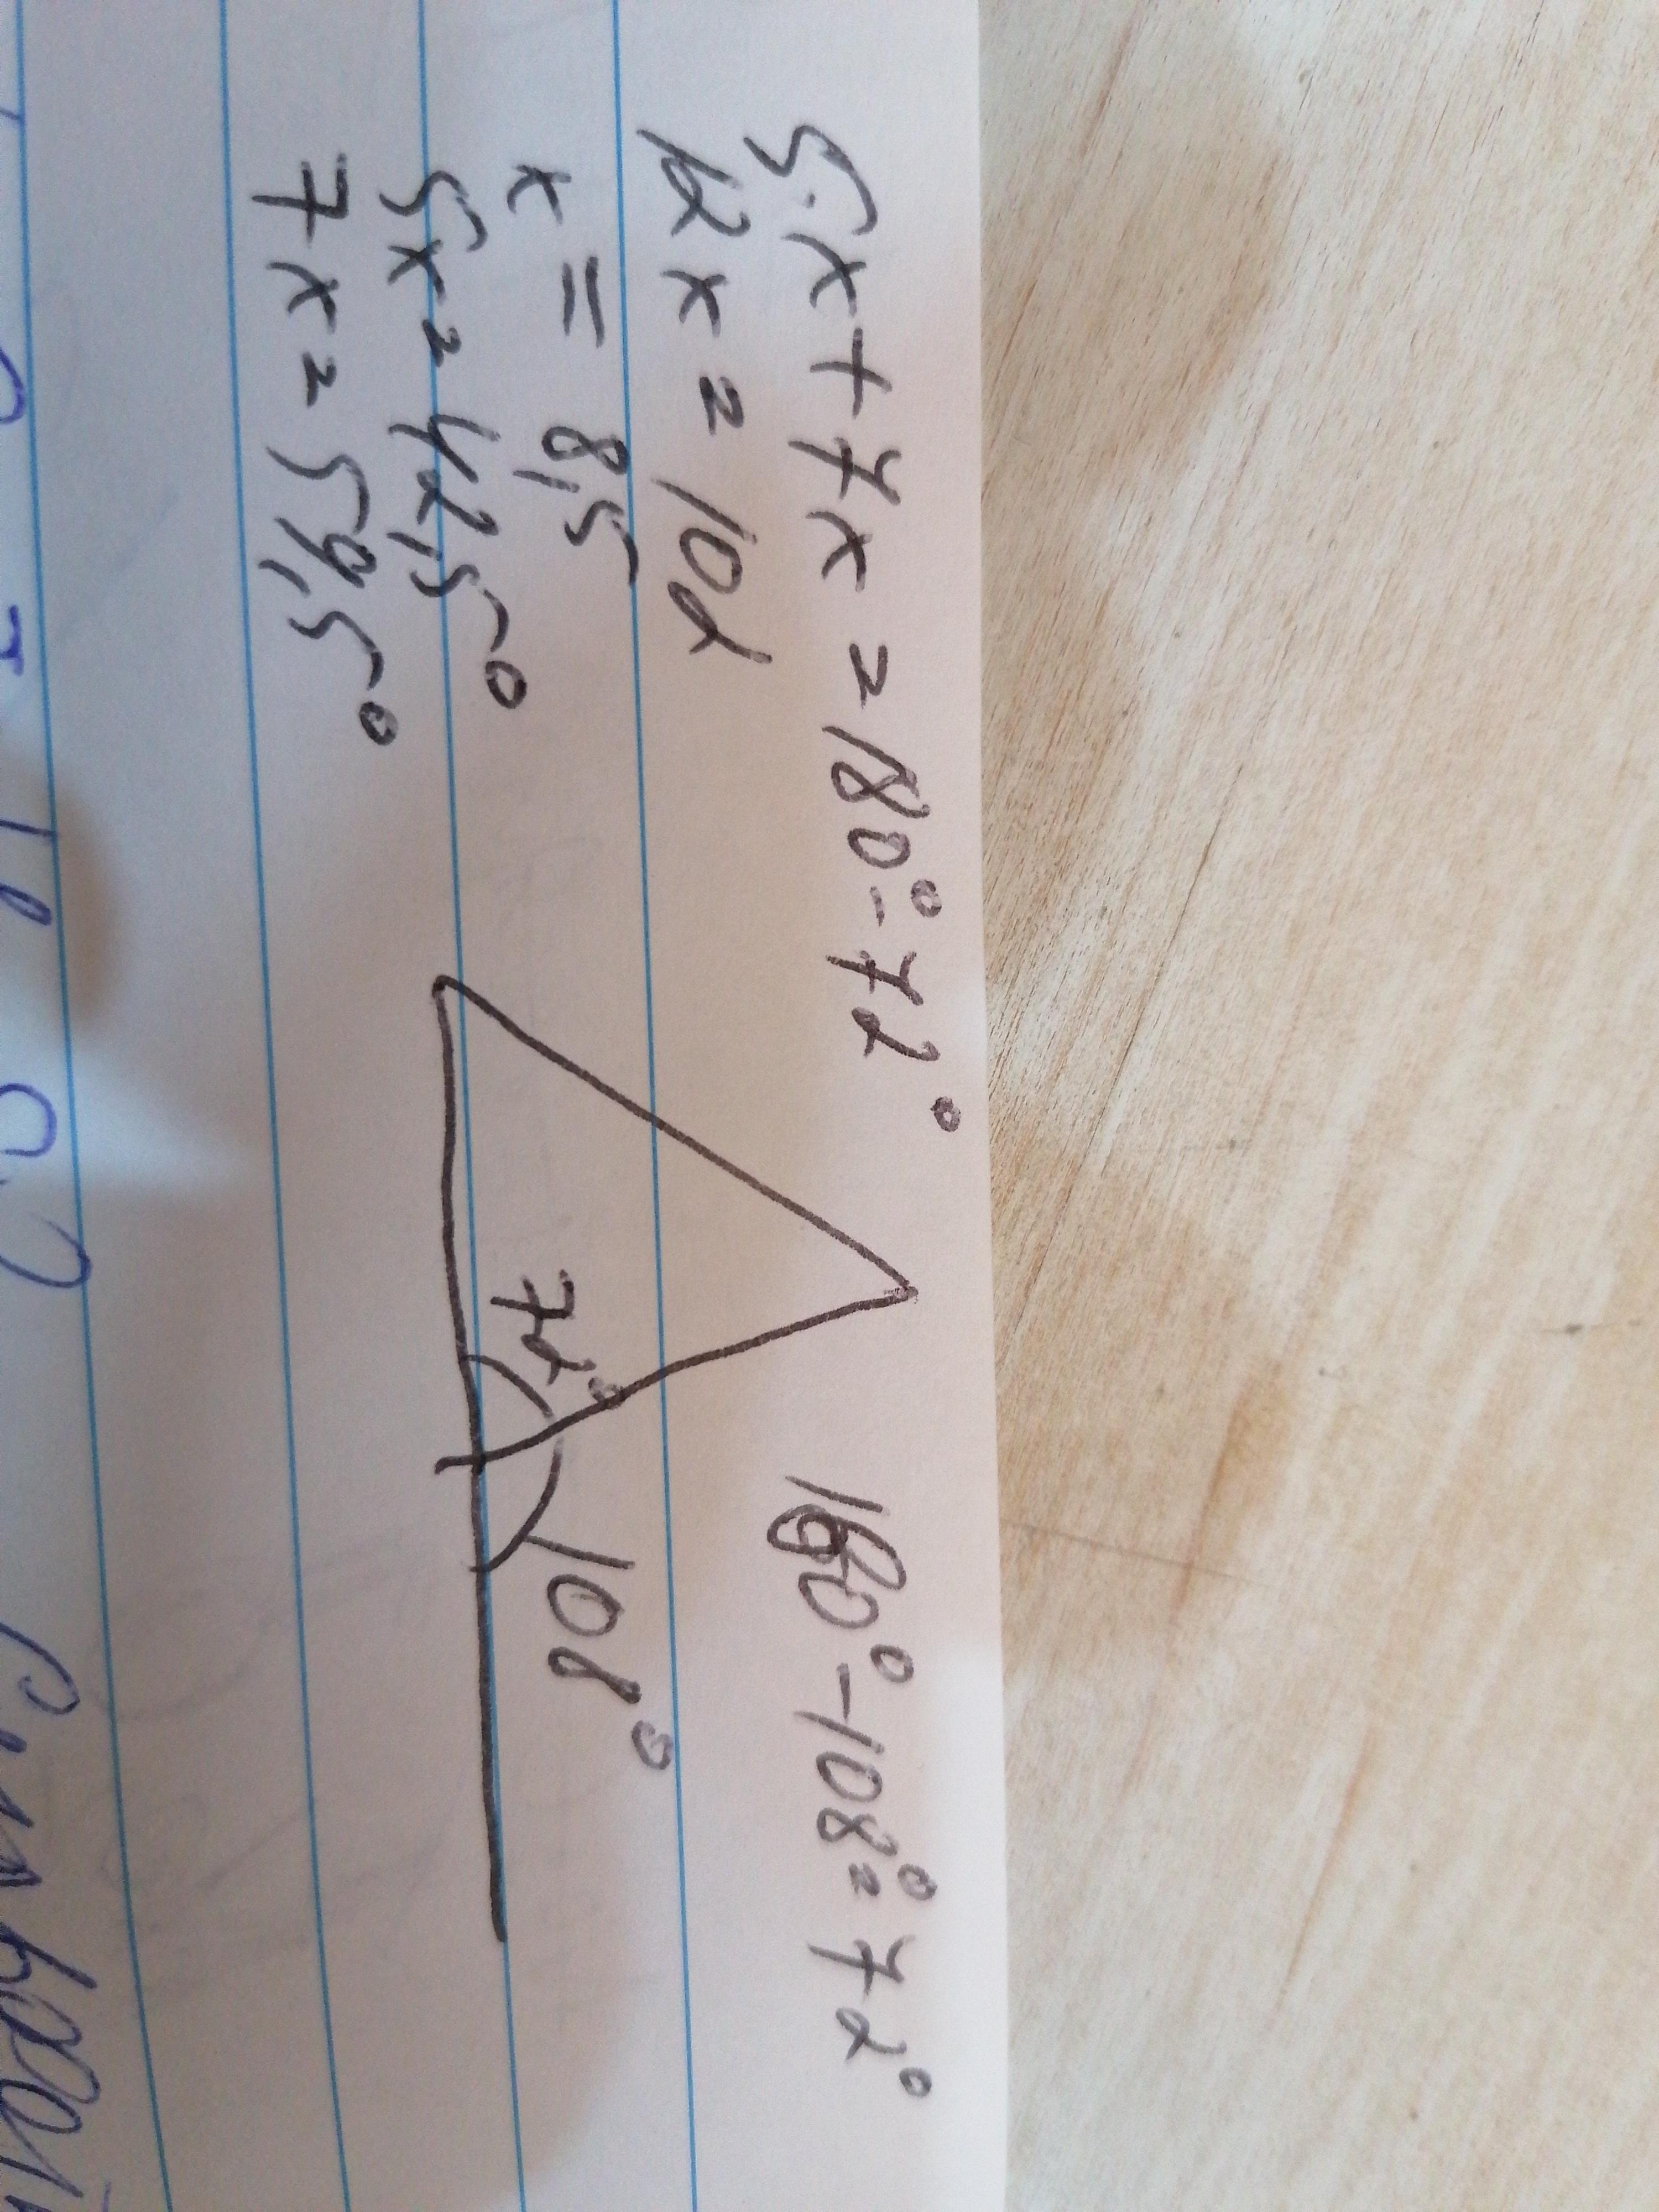 5x+7x=180°-72°
12x=102
x=8,5
5x=42,5°
7x=59,5°
180°-108°=72°
72°
108°